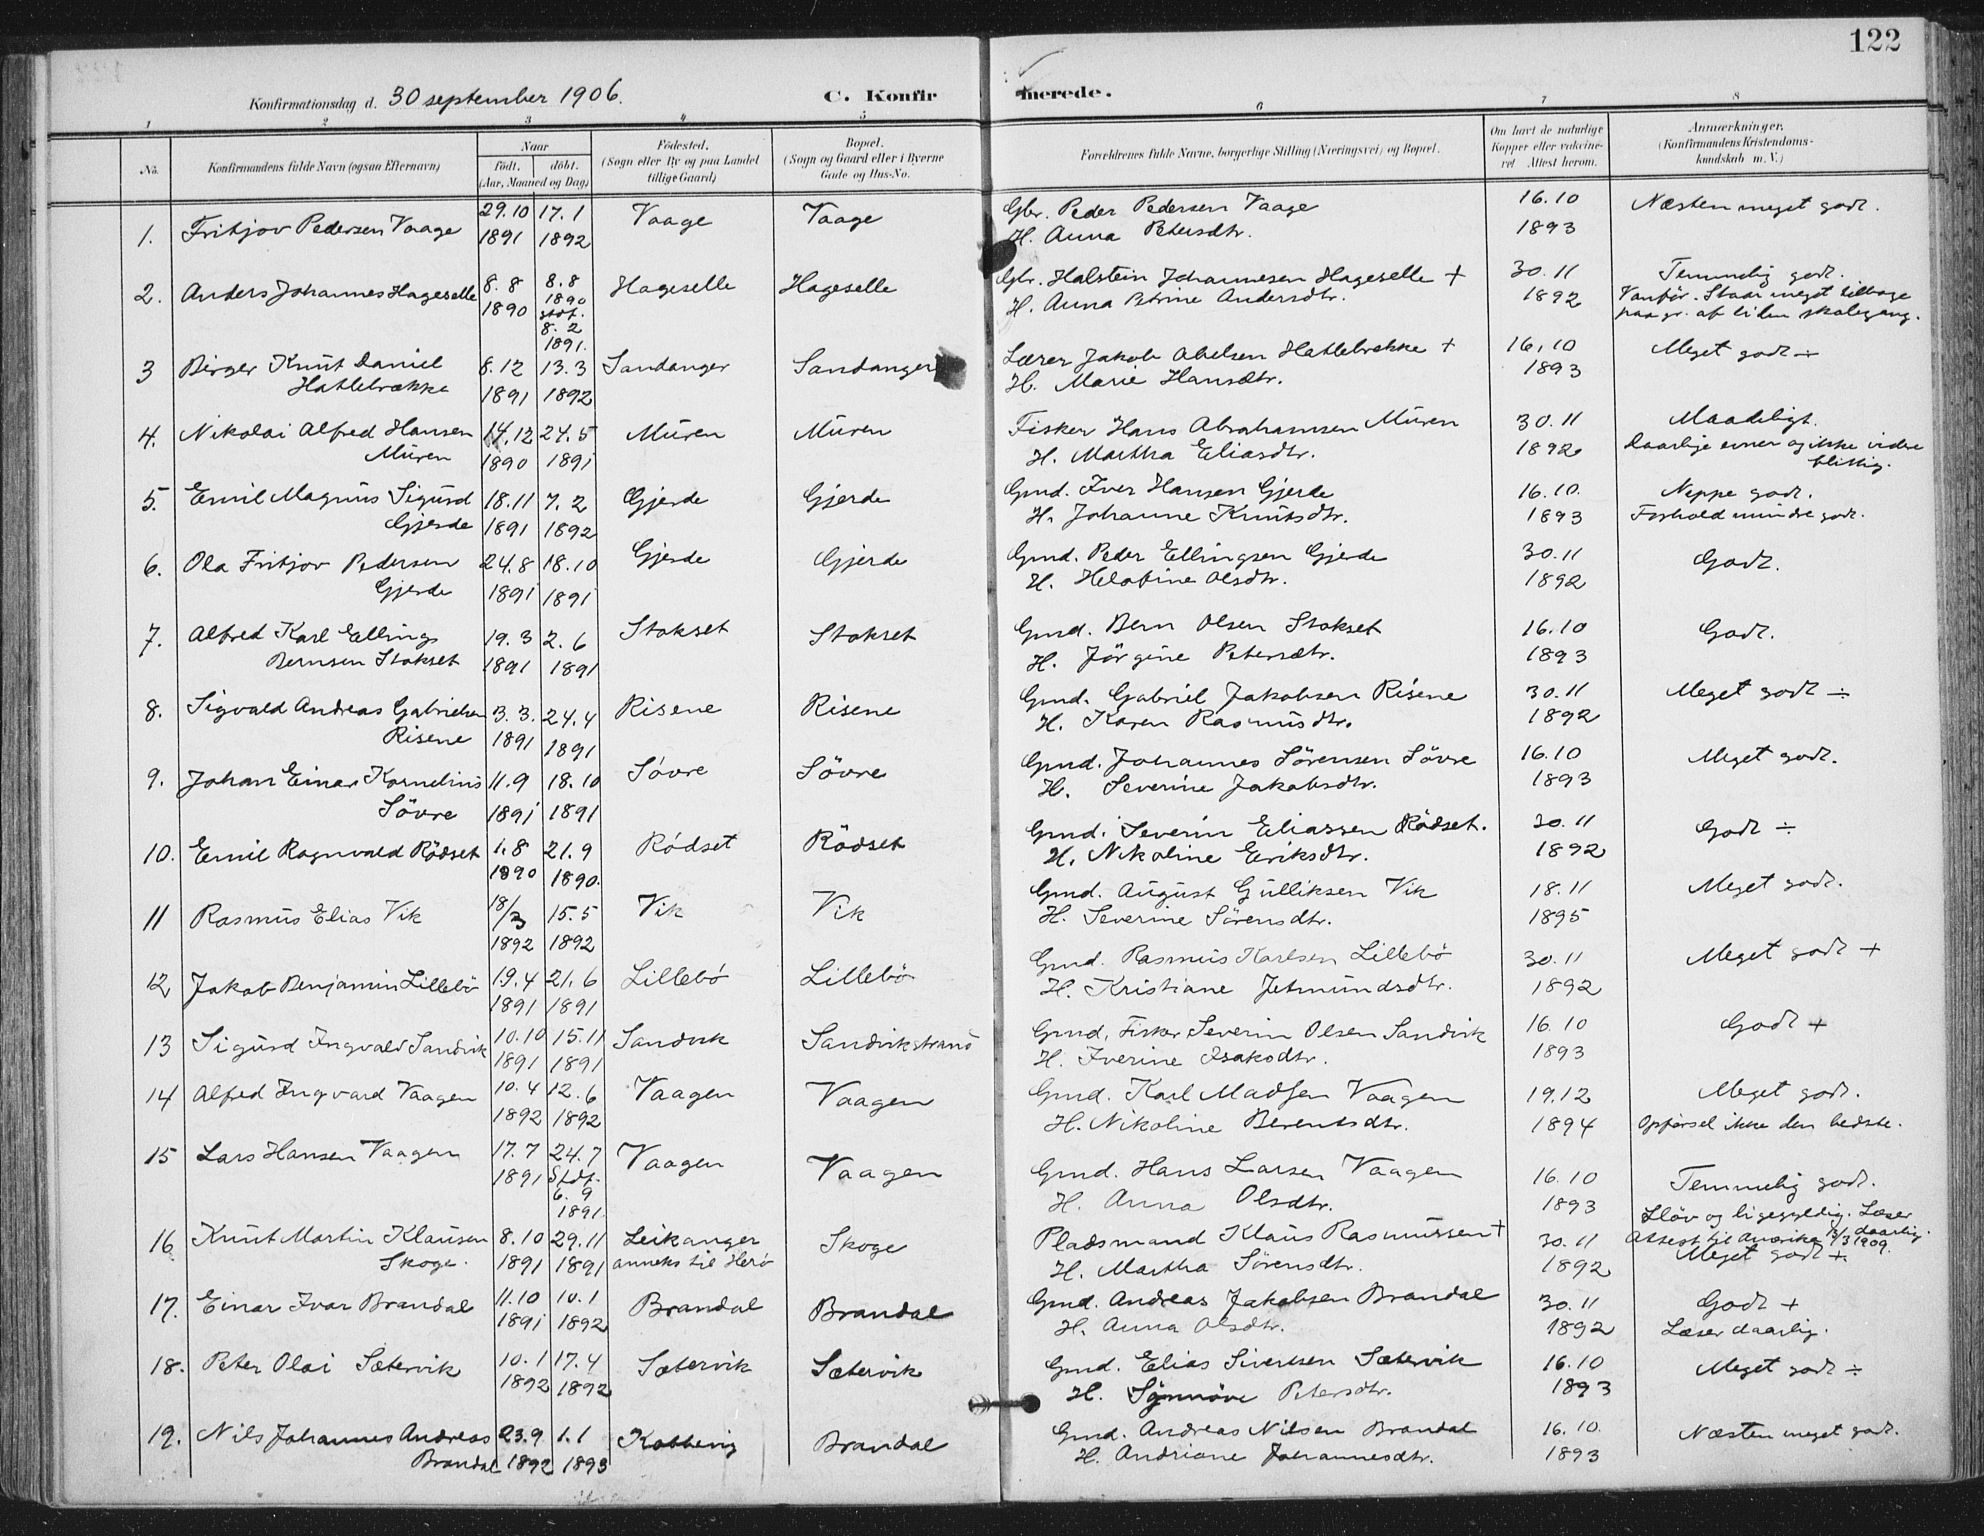 122
Konfirmationsdag d. 30 september 1906.
C. Konfirmerede.
1 2 3 4 5 6 7 8
No.
Konfirmandens fulde Navn (ogsaa Efternavn)
Naar
født. døbt.
(Aar, Maaned og Dag)
Fødested.
(Sogn eller By og paa Landet
tillige Gaard)
Bopæl.
(Sogn og Gaard eller i Byerne
Gade og Hus-No.
Forældrenes fulde Navne, borgerlige Stilling (Næringsvei) og Bopæl.
Om havt de naturlige
Kopper eller vakcine-
ret Attest herom.
Anmærkninger.
(Konfirmandens Kristendoms-
kundskab m. V.)
1. Fritjov Pedersen Vaage 29.10 17.1 Vaage Vaage Gbr. Peder Pedersen Vaage 16.10 Næsten meget godt.
1891 1892 H. Anna Petersdtr. 1893
2. Anders Johannes Hageselle 8.8 8.8 Hageselle Hageselle Gbr. Halstein Johannesen Hageselle + 30.11 Temmelig godt.
1890 1890 H. Anna Petrine Andersdtr. 1892 Vanfør. Staar meget tilbage
stdf. paa gr. af liden skolegang.
8.2
1891.
3 Birger Knut Daniel 8.12 13.3 Sandanger Sandanger Lærer Jakob Abelsen Hatlebrekke + 16.10 Meget godt ÷
Hatlebrække 1891 1892 H. Marie Hansdtr. 1893
4. Nikolai Alfred Hansen 14.12 24.5 Muren Muren Fisker Hans Abrahamsen Muren 30.11 Maadeligt.
Muren 1890 1891 H. Martha Eliasdtr. 1892 Daarlige evner og ikke videre
flittig.
5. Emil Magnus Sigurd 18.11 7.2 Gjerde Gjerde Gmd. Iver Hansen Gjerde 16.10. Neppe godt.
Gjerde 1891 1892 H. Johanne Knutsdtr. 1893 Forhold mindre godt.
6. Ola Fritjov Pedersen 24.8 18.10 Gjerde Gjerde Gmd. Peder Ellingsen Gjerde 30.11 Godt.
Gjerde 1891 1891 H. Olsdtr. 1892
7. Alfred Karl Ellings 19.3 2.6 Stokset Stokset Gmd. Bern Olsen Stokset 16.10 Godt.
Bernsen Stokset 1891 1891 H. Jörgine Petersdtr. 1893
8. Sigvald Andreas Gabrielsen 3.3. 24.4 Risene Risene Gmd. Gabriel Jakobsen Risene 30.11 Meget godt ÷
Risene 1891 1891 H. Karen Rasmusdtr. 1892
9. Johan Einar Kornelius 11.9 18.10 Sövre Sövre Gmd. Johannes Sörensen Sövre 16.10 Meget godt.
Sövre 1891 1891 H. Severine Jakobsdtr. 1893
10. Emil Ragnvald Rödset 1.8 21.9 Rödset Rödset Gmd. Severin Eliassen Rödset. 30.11 Godt ÷
1890 1890. H. Nikoline Eriksdtr. 1892
11 Rasmus Elias Vik 18/3 15.5 Vik Vik Gmd. August Gulliksen Vik 18.11 Meget godt.
1892 1892 H. Severine Sörensdtr. 1895
12 Jakob Benjamin Lillebö 19.4 21.6 Lillebö Lillebö Gmd. Rasmus Karlsen Lillebö 30.11 Meget godt +
1891 1891 H. Kristiane Jetmundsdtr. 1892
13 Sigurd Ingvald Sandvik 10.10 15.11 Sandvik Sandvikstrand Gmd. Fisker Severin Olsen Sandvik 16.10 Godt +
1891 1891 H. Iverine Isaksdtr. 1893
14 Alfred Ingvard Vaagen 10.4 12.6 Vaagen Vaagen Gmd. Karl Madsen Vaagen 19.12 Meget godt.
1892 1892 H. Nikoline Berentsdtr. 1894 Opförsel ikke den bedste.
15 Lars Hansen Vaagen 17.7 24.7 Vaagen Vaagen Gmd. Hans Larsen Vaagen 16.10 Temmelig godt.
1891 Stdf. H. Anna Olsdtr. 1893 Slöv og ligegyldig. Læser
6.9 daarlig.
1891.
16 Knut Martin Klausen 8.10 29.11 Leikanger Skoge Pladsmand Klaus Rasmussen + 30.11 Attest til Amerika 3/3 1909.
Skoge. 1891 1891 anneks til Herö H. Martha Sörensdtr. 1892 Meget godt +
17. Einar Ivar Brandal 11.10 10.1 Brandal Brandal Gmd. Andreas Jakobsen Brandal 30.11 Godt +
1891 1892 H. Anna Olsdtr. 1892 Læser daarlig.
18. Peter Olai Sætervik 10.1 17.4 Sætervik Sætervik Gmd. Elias Sivertsen Sætervik 16.10 Meget godt ÷
1892 1892 H. Synnöve Petersdtr. 1893
19. Nils Johannes Andreas 23.9 1.1 Kobbevig Brandal Gmd. Andreas Nilsen Brandal 16.10. Næsten meget godt.
Brandal 1892 1893 H. Andriane Johannesdtr. 1893